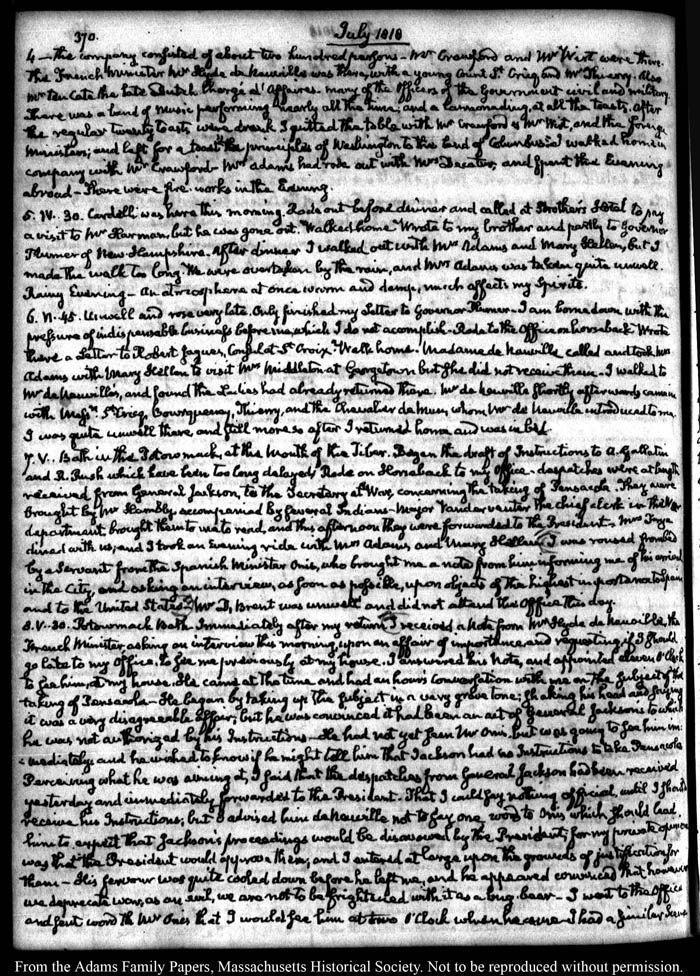 370.
July 1818
4 — the company consisted of about two hundred persons — Mr Crawford and Mr Wirt were there.
The French Minister Mr Hyde de Neuville was there, with a young Count St Cricq and Mr Thierry. Also
Mr Ten Cate the late Dutch Chargé d'Affaires. many of the Officers of the Government civil and military
There was a band of music performing nearly all the time; and a cannonading, at all the toasts. After
the regular twenty toasts were drank I quitted the table with Mr Crawford & Mr Wirt, and the foreign
Ministers; and left for a toast the principles of Washington to the land of Columbus. I walked home in
company with Mr Crawford — Mrs Adams had rode out with Mrs Decatur, and spent the Evening
abroad — There were fire-works in the Evening.
5. IV. 30. Cardelli was here this morning. Rode out before dinner and called at Strother's Hotel to pay
a visit to Mr Harman, but he was gone out. Walked home. Wrote to my brother and partly to Governor
Plumer of New Hampshire. After dinner I walked out with Mrs Adams and Mary Hellen, but I
made the walk too long. We were overtaken by the rain, and Mrs Adams was taken quite unwell.
Rainy Evening — An atmosphere at once warm and damp, much affects my Spirits.
6. IV. 45. Unwell and rose very late. Only finished my Letter to Governor Plumer — I am borne down with the
pressure of indispensable business before me, which I do not accomplish. Rode to the Office on horseback. Wrote
there a Letter to Robert Jaques, Consul at St Croix. Walk home. Madame de Neuville called and took Mrs
Adams with Mary Hellen to visit Mrs Middleton at Georgetown but she did not receive them. I walked to
Mr de Neuville's, and found the Ladies had already returned there. Mr de Neuville shortly afterwards came in
with Messrs St Cricq, Bourqueney, Thierry, and the Chevalier de Mun, whom Mr de Neuville introduced to me.
I was quite unwell there and still more so after I returned home and was in bed
7. V. Bath in the Potowmack, at the Mouth of the Tiber. Began the draft of Instructions to A. Gallatin
and R. Rush which have been too long delayed. Rode on Horseback to my Office — despatches were at length
received from General Jackson, to the Secretary of War, concerning the taking of Pensacola. They were
brought by Mr Hambly accompanied by several Indians — Major Vandeventer the chief clerk in the War
department brought them to me to read, and this afternoon they were forwarded to the President. Mrs Frye
dined with us; and I took an Evening ride with Mrs Adams and Mary Hellen. I was roused from bed
by a Servant from the Spanish Minister Onis, who brought me a note from him informing me of his arrival
in the City, and asking an interview, as soon as possible, upon objects of the highest importance to Spain
and to the United States. Mr D. Brent was unwell and did not attend the Office this day.
8. V. 30. Potowmack Bath. Immediately after my return I received a Note from Mr Hyde de Neuville, the
French Minister asking an interview this morning, upon an affair of importance and requesting if I should
go late to my Office, to see me previously at my house. I answered his Note, and appointed eleven O'Clock
to see him at my house. He came at the time and had an hour's conversation with me on the subject of the
taking of Pensacola — He began by taking up the subject in a very grave tone; shaking his head and saying
it was a very disagreeable affair; but he was convinced it had been an act of General Jackson's to which
he was not authorized by his Instructions — He had not yet seen Mr Onis, but was going to see him im-
mediately: and he wished to know if he might tell him that Jackson had no Instructions to take Pensacola
Perceiving what he was aiming at, I said that the despatches from General Jackson had been received
yesterday and immediately forwarded to the President. That I could say nothing official, until I should
receive his Instructions, but I advised him de Neuville not to say one word to Onis which should lead
him to expect that Jackson's proceedings would be disavowed by the President, for my private opinion
was that the President would approve them; and I entered at large upon the grounds of justification for
them — His fervour was quite cooled down before he left me, and he appeared convinced that however
we deprecate war, as an evil, we are not to be frightened with it as a bug-bear — I went to the Office
and sent word to Mr Onis that I would see him at two O'Clock when he came — I had a similar
From the Adams Family Papers, Massachusetts Historical Society. Not to be reproduced without permission.